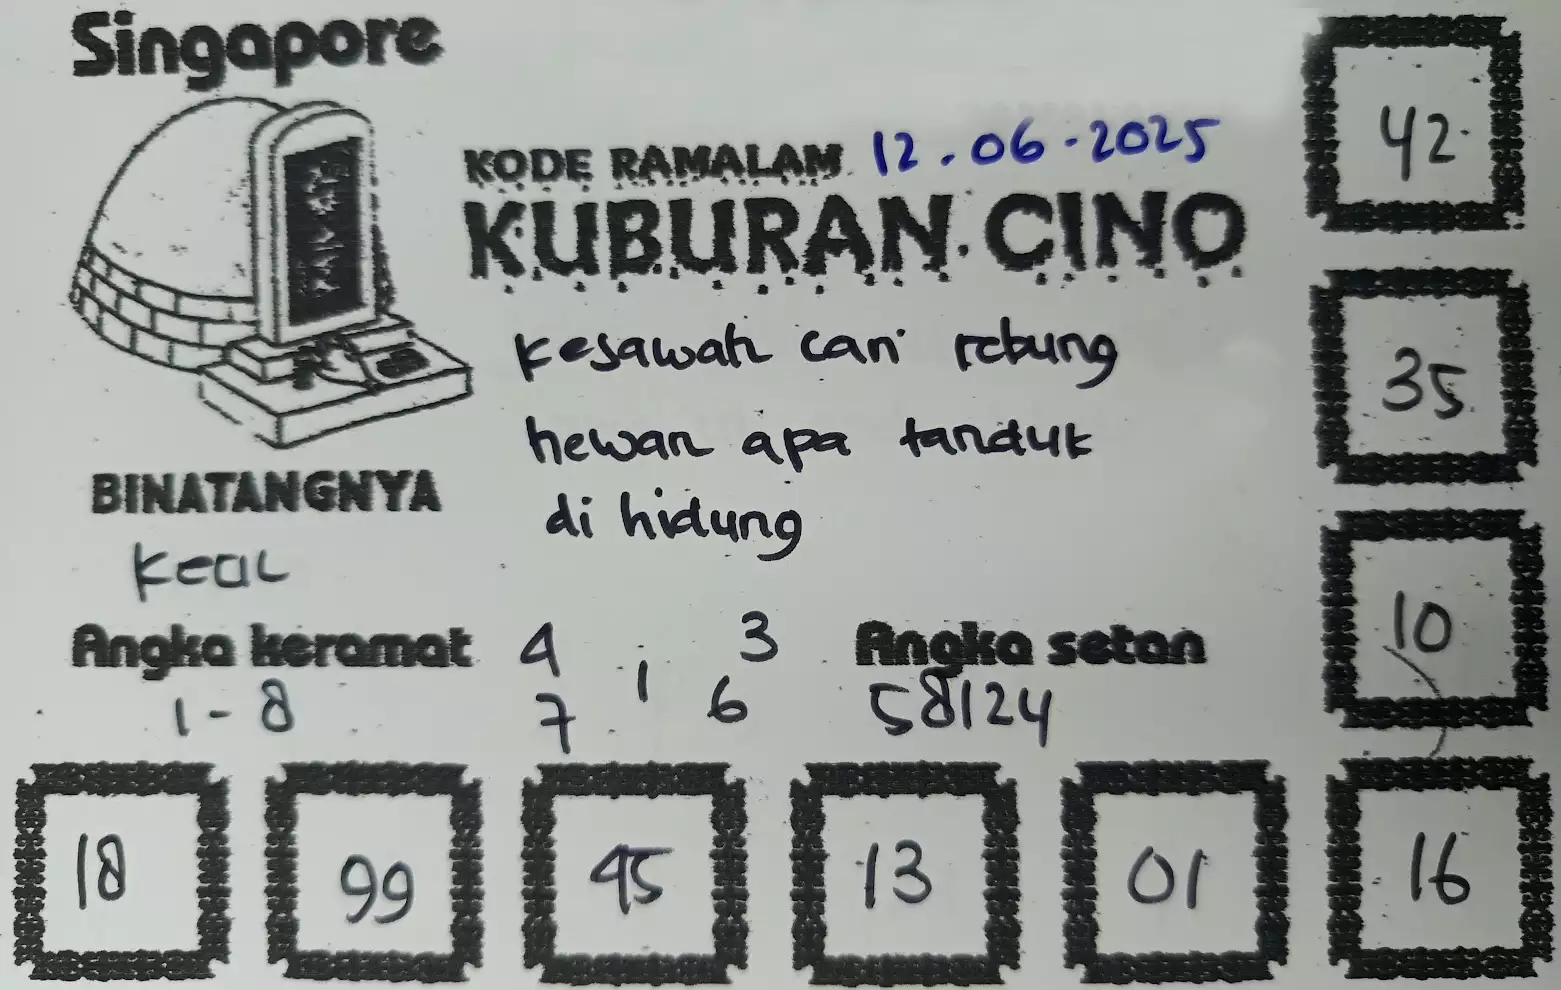 Singapore
42
KODE RAMALAM 12.06-2025
KUBURAN CINO
kesawah cari rebung
35
hewan apa tanduk
BINATANGNYA
di hidung
10
Angka keramat
1-8
4 3
1
7 6
Angka setan
58124
18 99 45 13 01 16